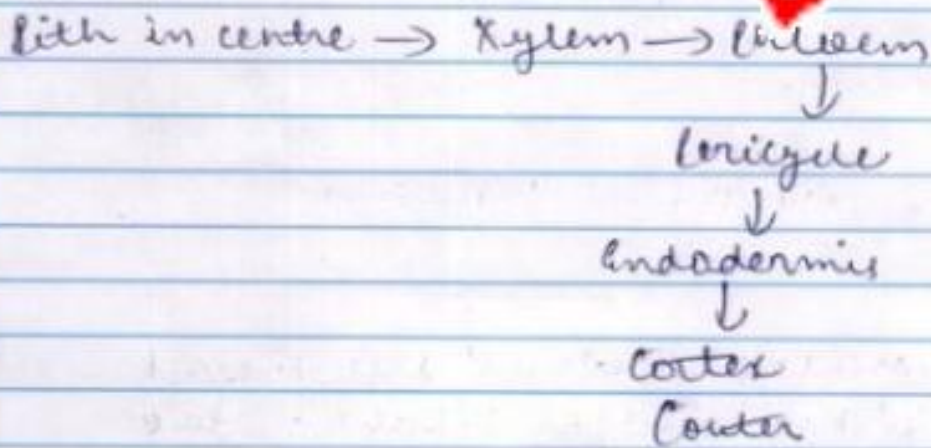 Pith in centre → Xylem → Phloem
↓
Pericycle
↓
Endodermis
↓
Cortex